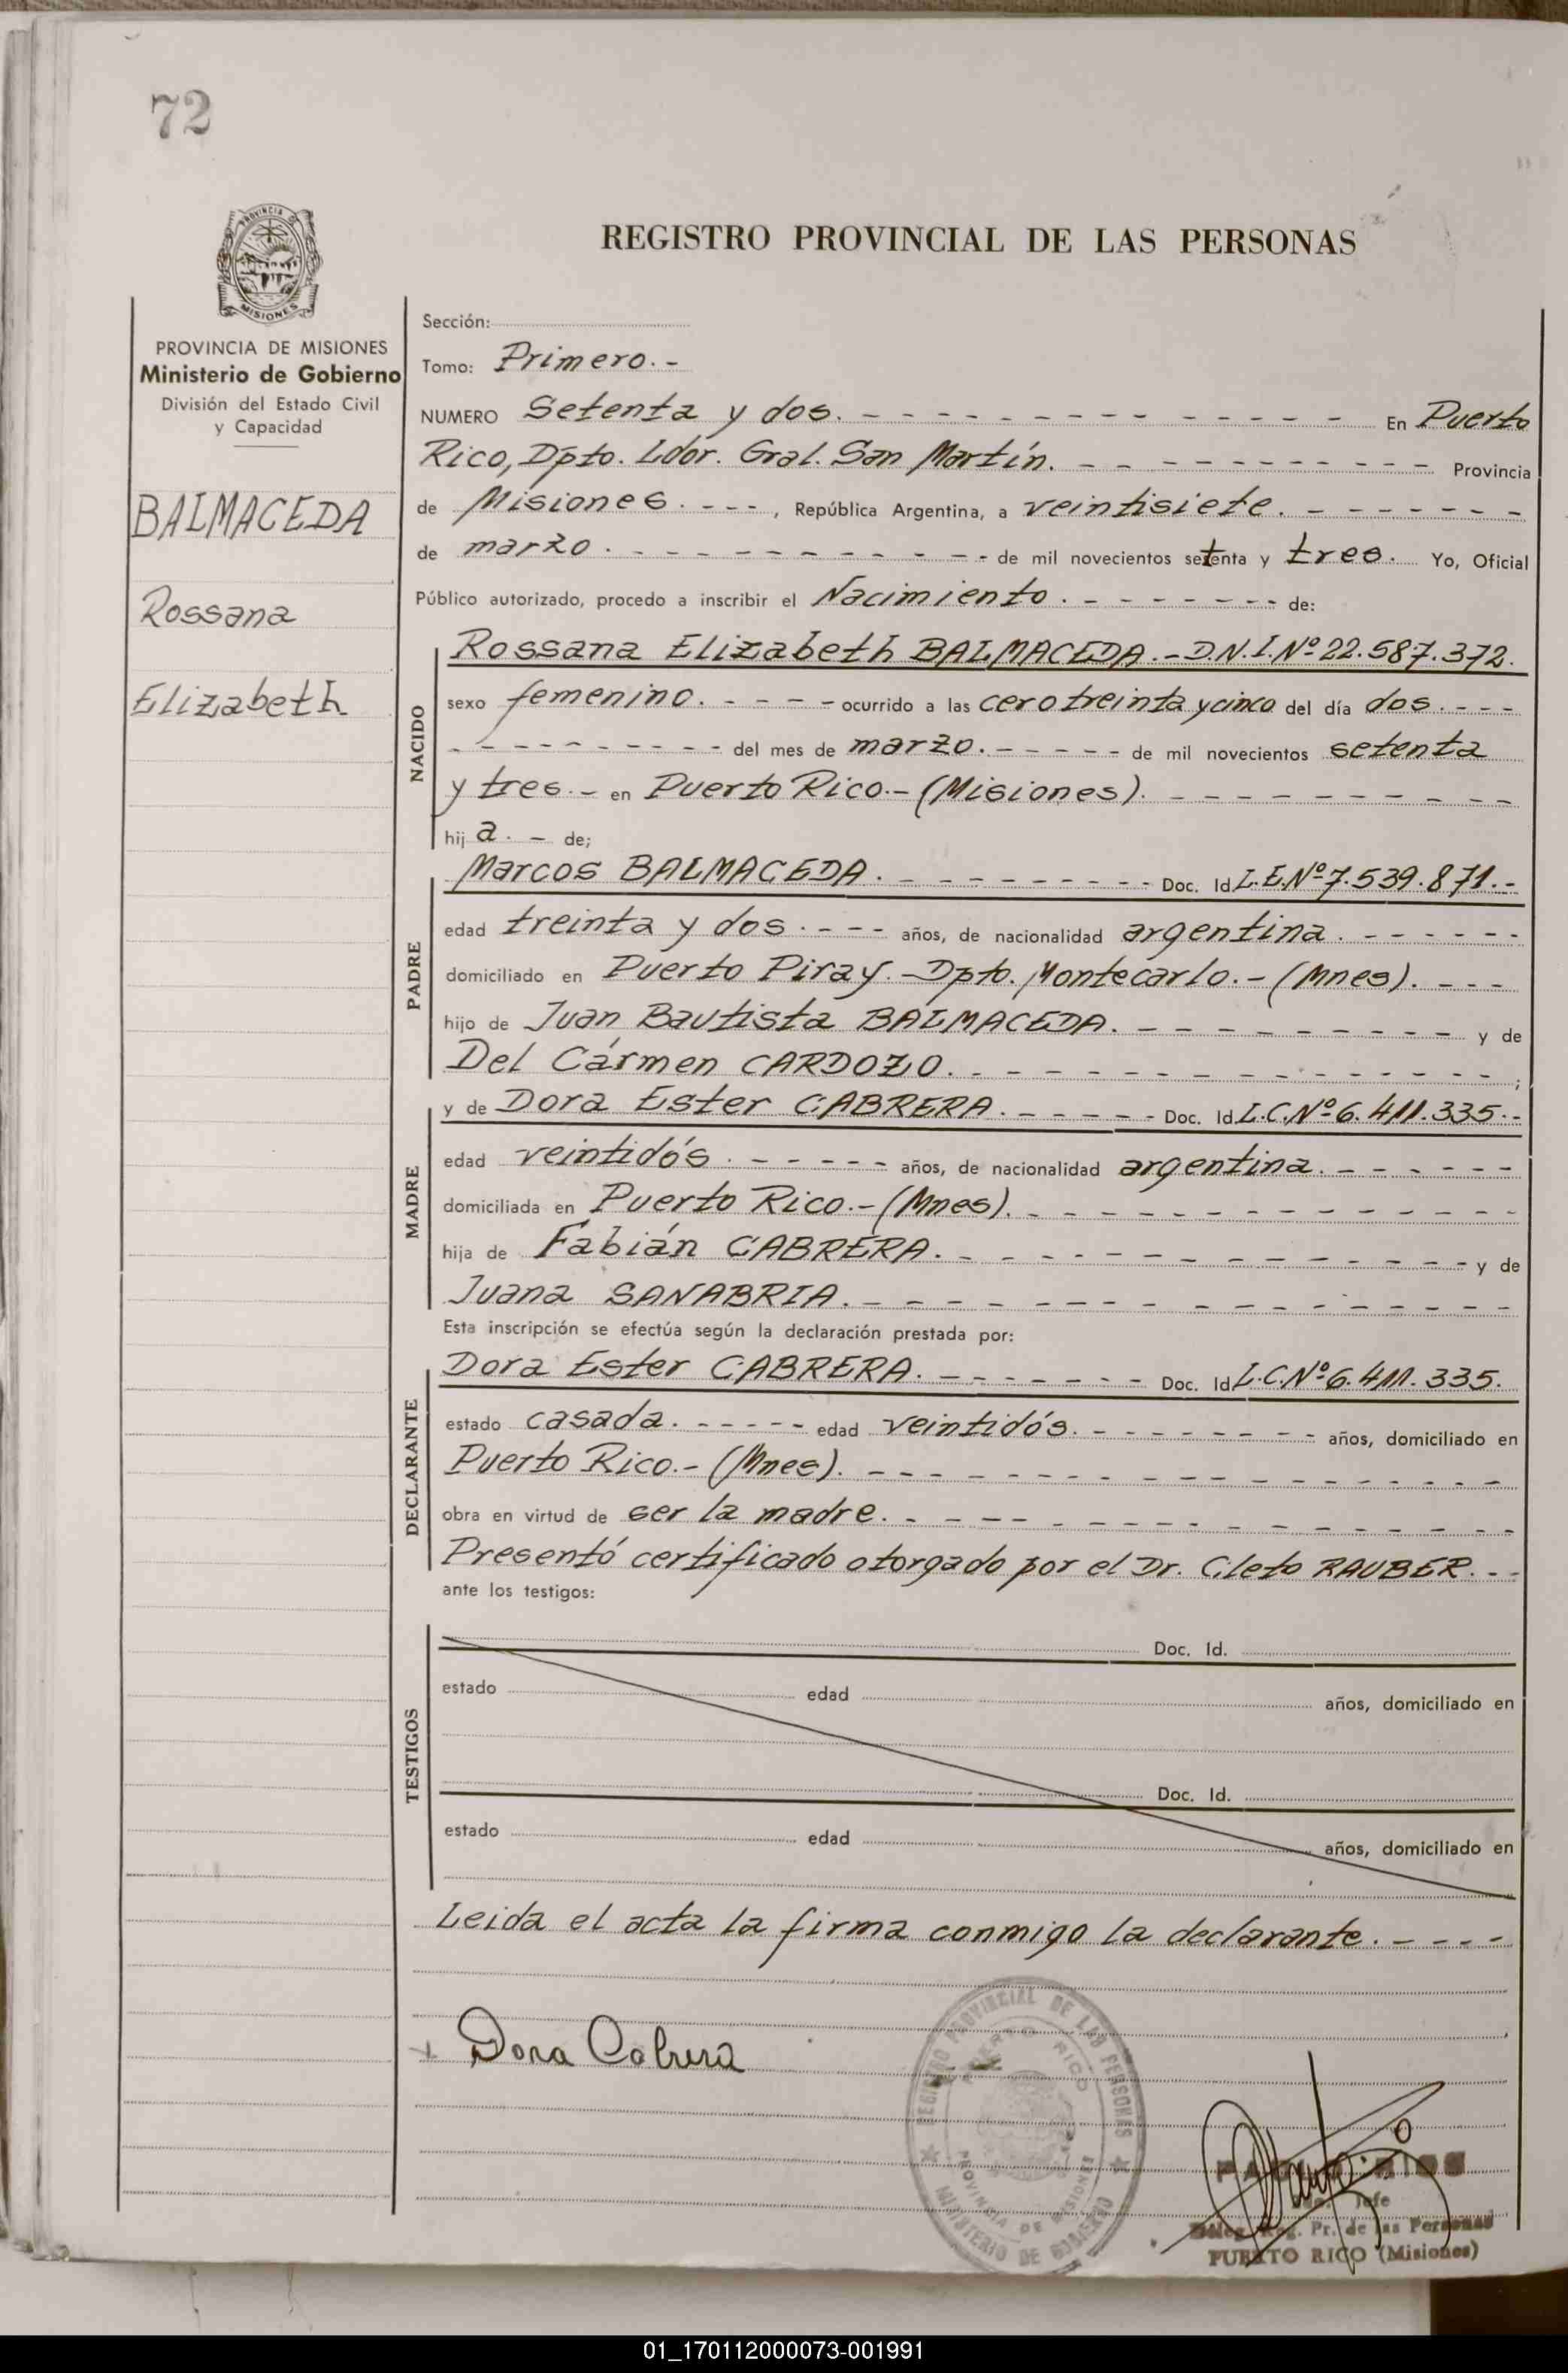 72
PROVINCIA DE
MISIONES
REGISTRO PROVINCIAL DE LAS PERSONAS
PROVINCIA DE MISIONES
Ministerio de Gobierno
División del Estado Civil
y Capacidad
BALMACEDA
Rossana
Elizabeth
Sección:
Tomo: Primero.-
NUMERO Setenta y dos. - - - - - - - - - - - - - - - En Puerto
Rico, Dpto. Ldor. Gral. San Martín. - - - - - - - - - - - Provincia
de Misiones. - - - , República Argentina, a veintisiete. - - - - - - -
de marzo. - - - - - - - - - - - - de mil novecientos setenta y tres. Yo, Oficial
Público autorizado, procedo a inscribir el Nacimiento. - - - - - - - - de:
NACIDO
Rossana Elizabeth BALMACEDA.- D.N.I.Nº 22.587.372.
sexo femenino. - - - - ocurrido a las cero treinta y cinco del día dos. - - -
- - - - - - - - - - del mes de marzo. - - - - - de mil novecientos setenta
y tres.- en Puerto Rico.- (Misiones). - - - - - - - - -
hij a. - de;
PADRE
Marcos BALMACEDA. - - - - - - - - - Doc. Id L.E.Nº 7.539.871.-
edad treinta y dos. - - - años, de nacionalidad argentina. - - - - - -
domiciliado en Puerto Piray.- Dpto. Montecarlo.- (Mnes). - - -
hijo de Juan Bautista BALMACEDA. - - - - - - - - - - y de
Del Cármen CARDOZO. - - - - - - - - - - - - - - ;
MADRE
y de Dora Ester CABRERA. - - - - - Doc. Id L.C.Nº 6.411.335.-
edad veintidós. - - - - - - años, de nacionalidad argentina. - - - - - -
domiciliada en Puerto Rico.- (Mnes). - - - - - - - - - - - - -
hija de Fabián CABRERA. - - - - - - - - - - - - - y de
Juana SANABRIA. - - - - - - - - - - - - - - - -
Esta inscripción se efectúa según la declaración prestada por:
DECLARANTE
Dora Ester CABRERA. - - - - - - - Doc. Id L.C.Nº 6.411.335.
estado casada. - - - - - edad veintidós. - - - - - - - - años, domiciliado en
Puerto Rico.- (Mnes). - - - - - - - - - - - - - - - -
obra en virtud de ser la madre. - - - - - - - - - - - - - - -
Presentó certificado otorgado por el Dr. Cleto RAUBER. - -
ante los testigos:
TESTIGOS
Doc. Id.
estado edad años, domiciliado en
Doc. Id.
estado edad años, domiciliado en
Leida el acta la firma conmigo la declarante. - - - -
Dora Cabrera
REGISTRO PROVINCIAL DE LAS PERSONAS
PUERTO RICO
PROVINCIA DE MISIONES
MINISTERIO DE GOBIERNO
Jefe
Deleg. Reg. Pr. de las Personas
PUERTO RICO (Misiones)
01_170112000073-001991